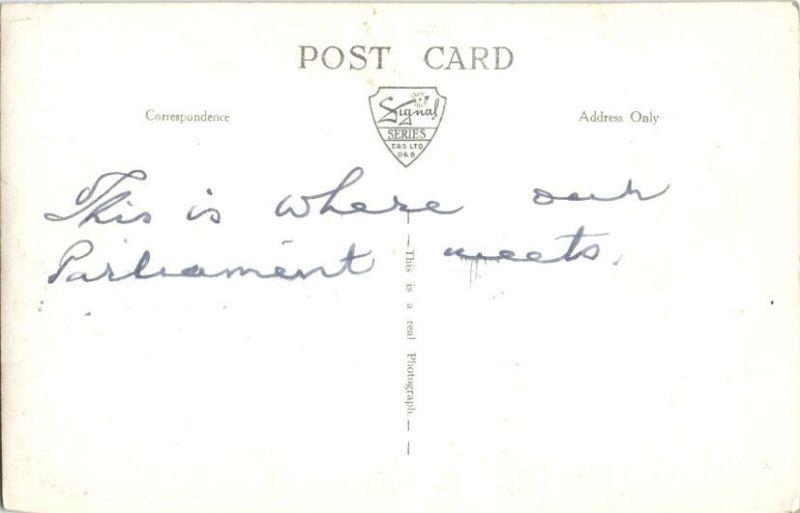 POST CARD
Correspondence
Signal
SERIES
E&S LTD
D&B
Address Only
This is where our
Parliament meets.
—This is a real Photograph.—